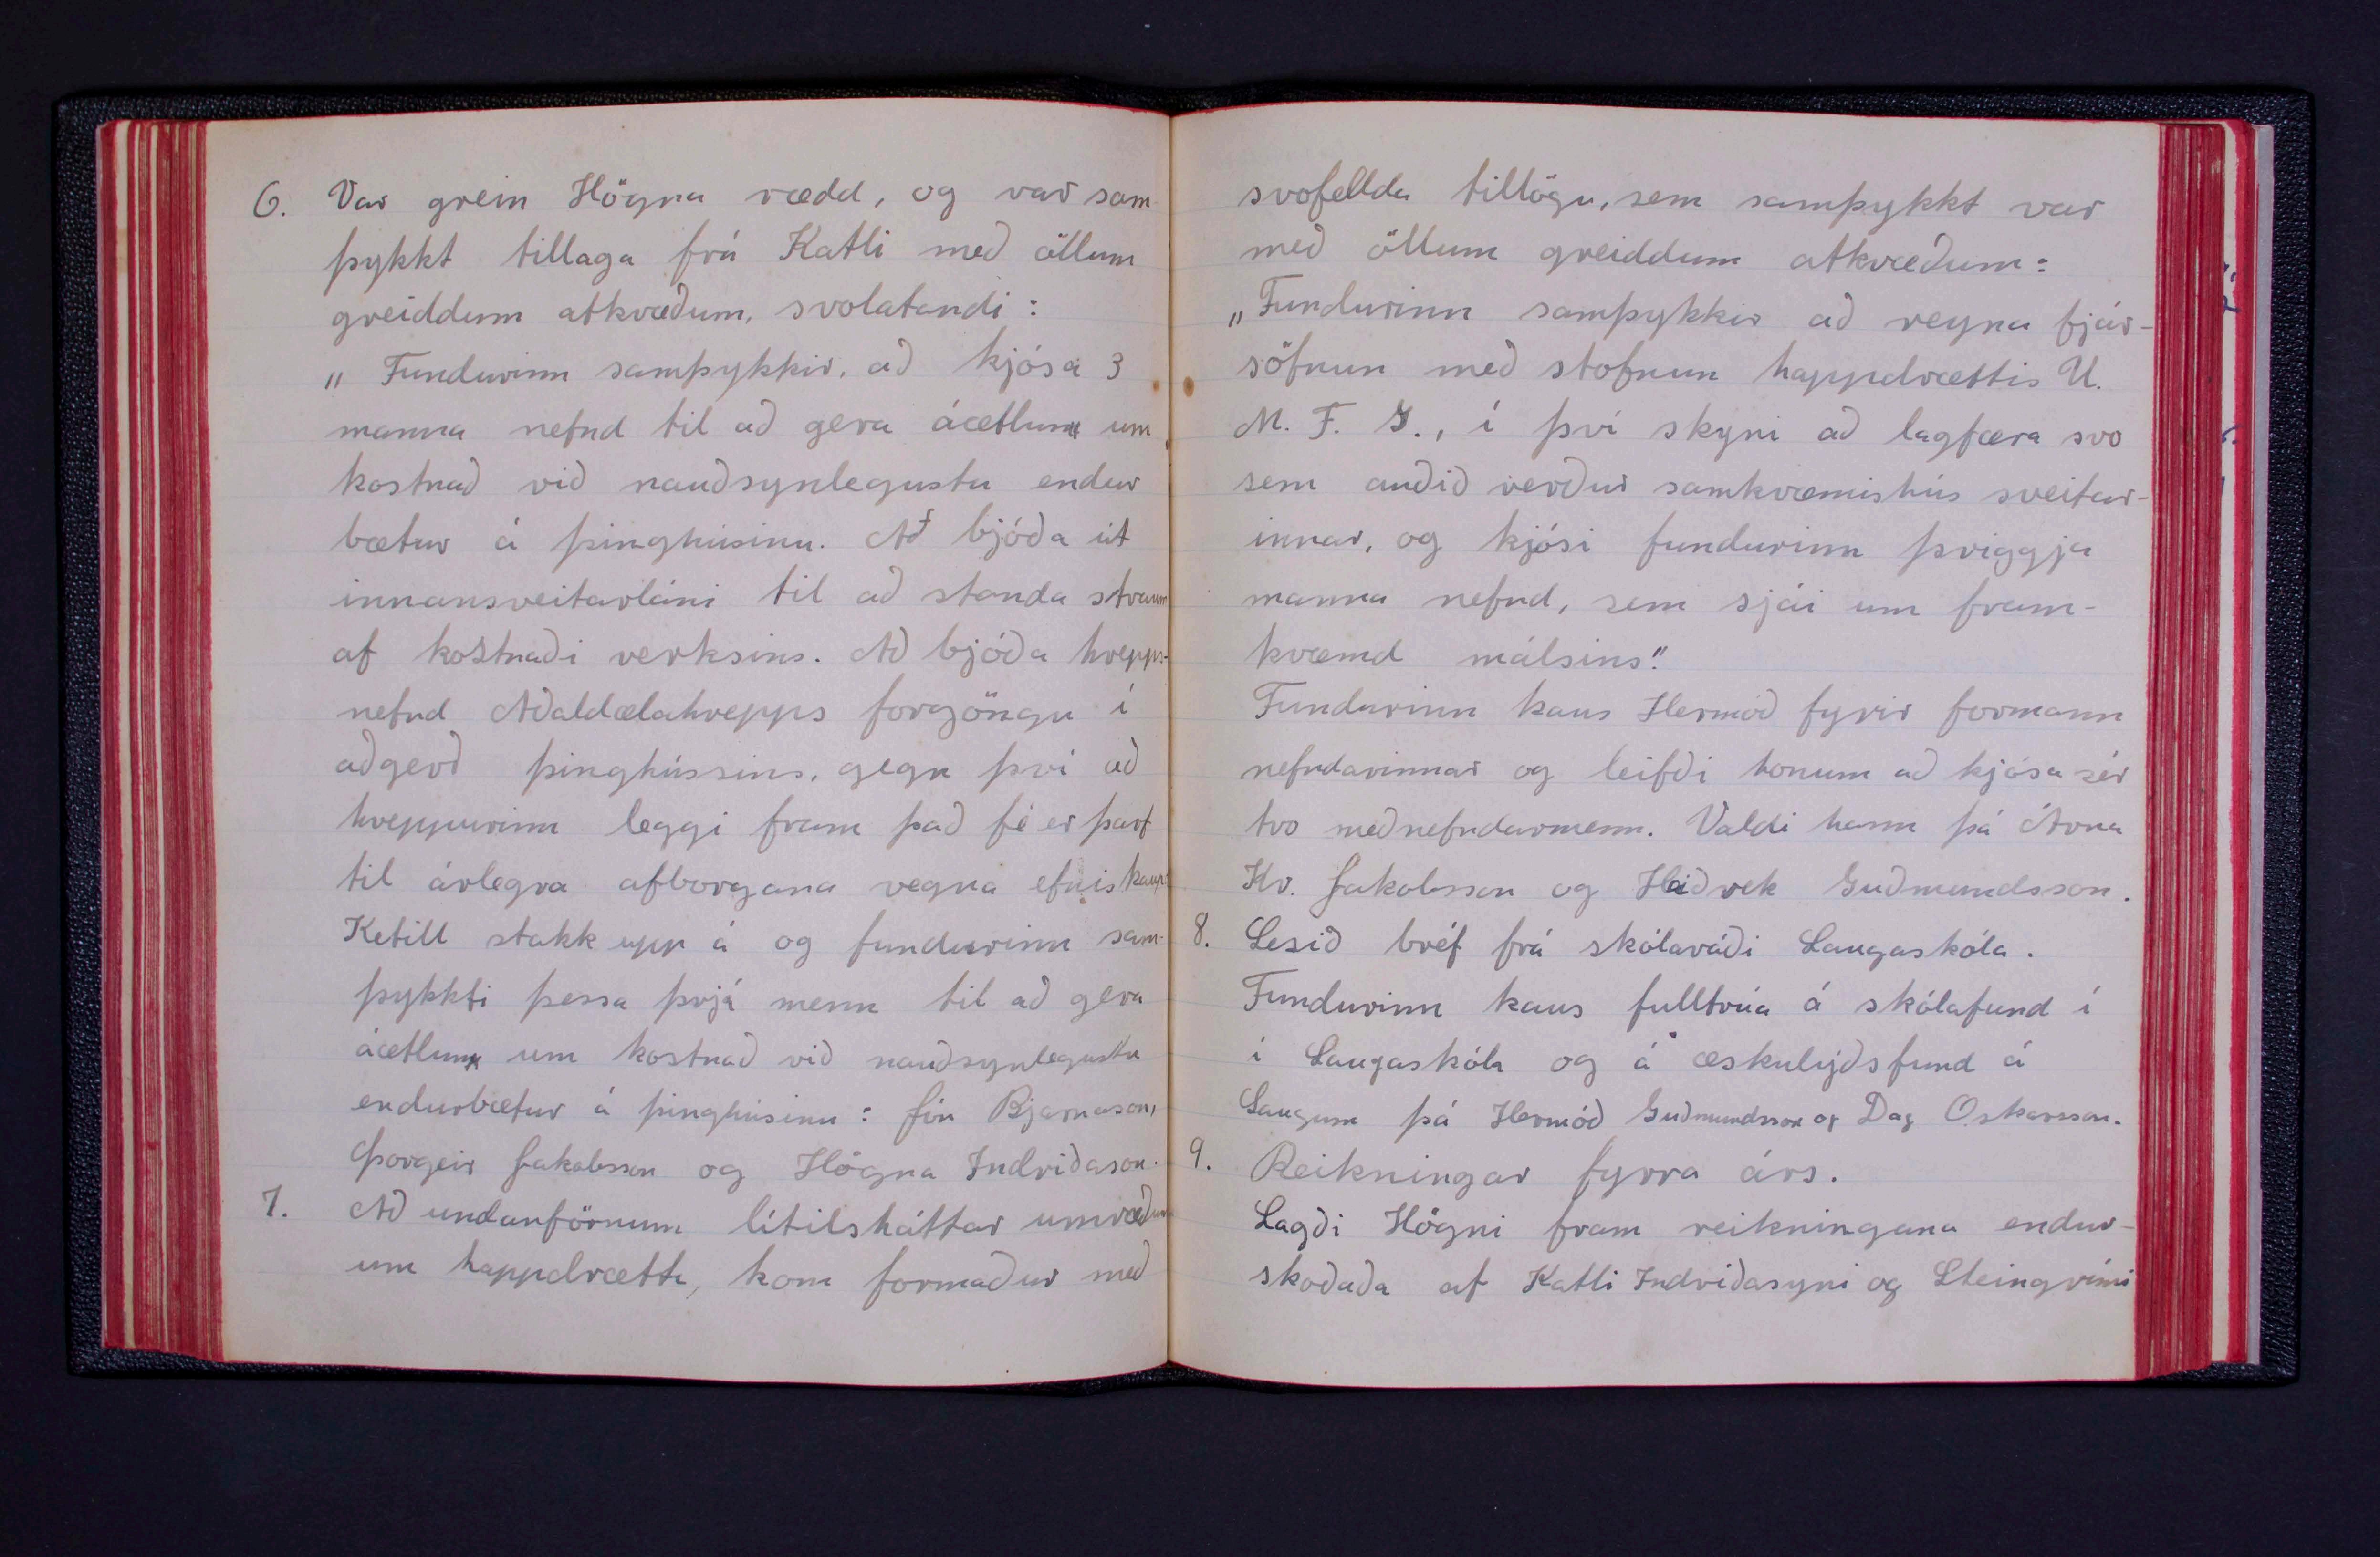 6. Var grein Högna rædd, og var sam
þykkt tillaga frá Katli með öllum
greiddum atkvæðum, svolatandi:
„Fundurinn samþykkir, að kjósa 3
manna nefnd til að gera áætlun um
kostnað við nauðsynlegustu endur
bætur á þinghúsinu. Að bjóða út
innansveitarláni til að standa straum
af kostnaði verksins. Að bjóða hrepps-
nefnd Aðaldælahrepps forgöngu í
aðgerð þinghússins, gegn því að
hreppurinn leggi fram það fé er þarf
til árlegra afborgana vegna efniskaup
Ketill stakk upp á og fundurinn sam-
þykkti þessa þrjá menn til að gera
áætlun um kostnað við nauðsynlegustu
endurbætur á þinghúsinu: Jón Bjarnason,
Þorgeir Jakobsson og Högna Indriðason.
7. Að undanförnum lítilsháttar umræðum
um happdrætti, kom formaður með
svofellda tillögu, sem samþykkt var
með öllum greiddum atkvæðum:
„Fundurinn samþykkir að reyna fjár-
söfnun með stofnun happdrættis U.
M. F. G., í því skyni að lagfæra svo
sem auðið verður samkvæmishús sveitar-
innar, og kjósi fundurinn þriggja
manna nefnd, sem sjái um fram-
kvæmd málsins."
Fundurinn kaus Hermóð fyrir formann
nefndarinnar og leifði honum að kjósa sér
tvo meðnefndarmenn. Valdi hann þá Árna
Kr. Jakobsson og Heiðrek Guðmundsson.
8. Lesið bréf frá skólaráði Laugaskóla.
Fundurinn kaus fulltrúa á skólafund í
í Laugaskóla og á æskulýðsfund á
Laugum þá Hermóð Guðmundsson og Dag Oskarsson.
9. Reikningar fyrra árs.
Lagði Högni fram reikningana endur-
skoðaða af Katli Indriðasyni og Steingrími